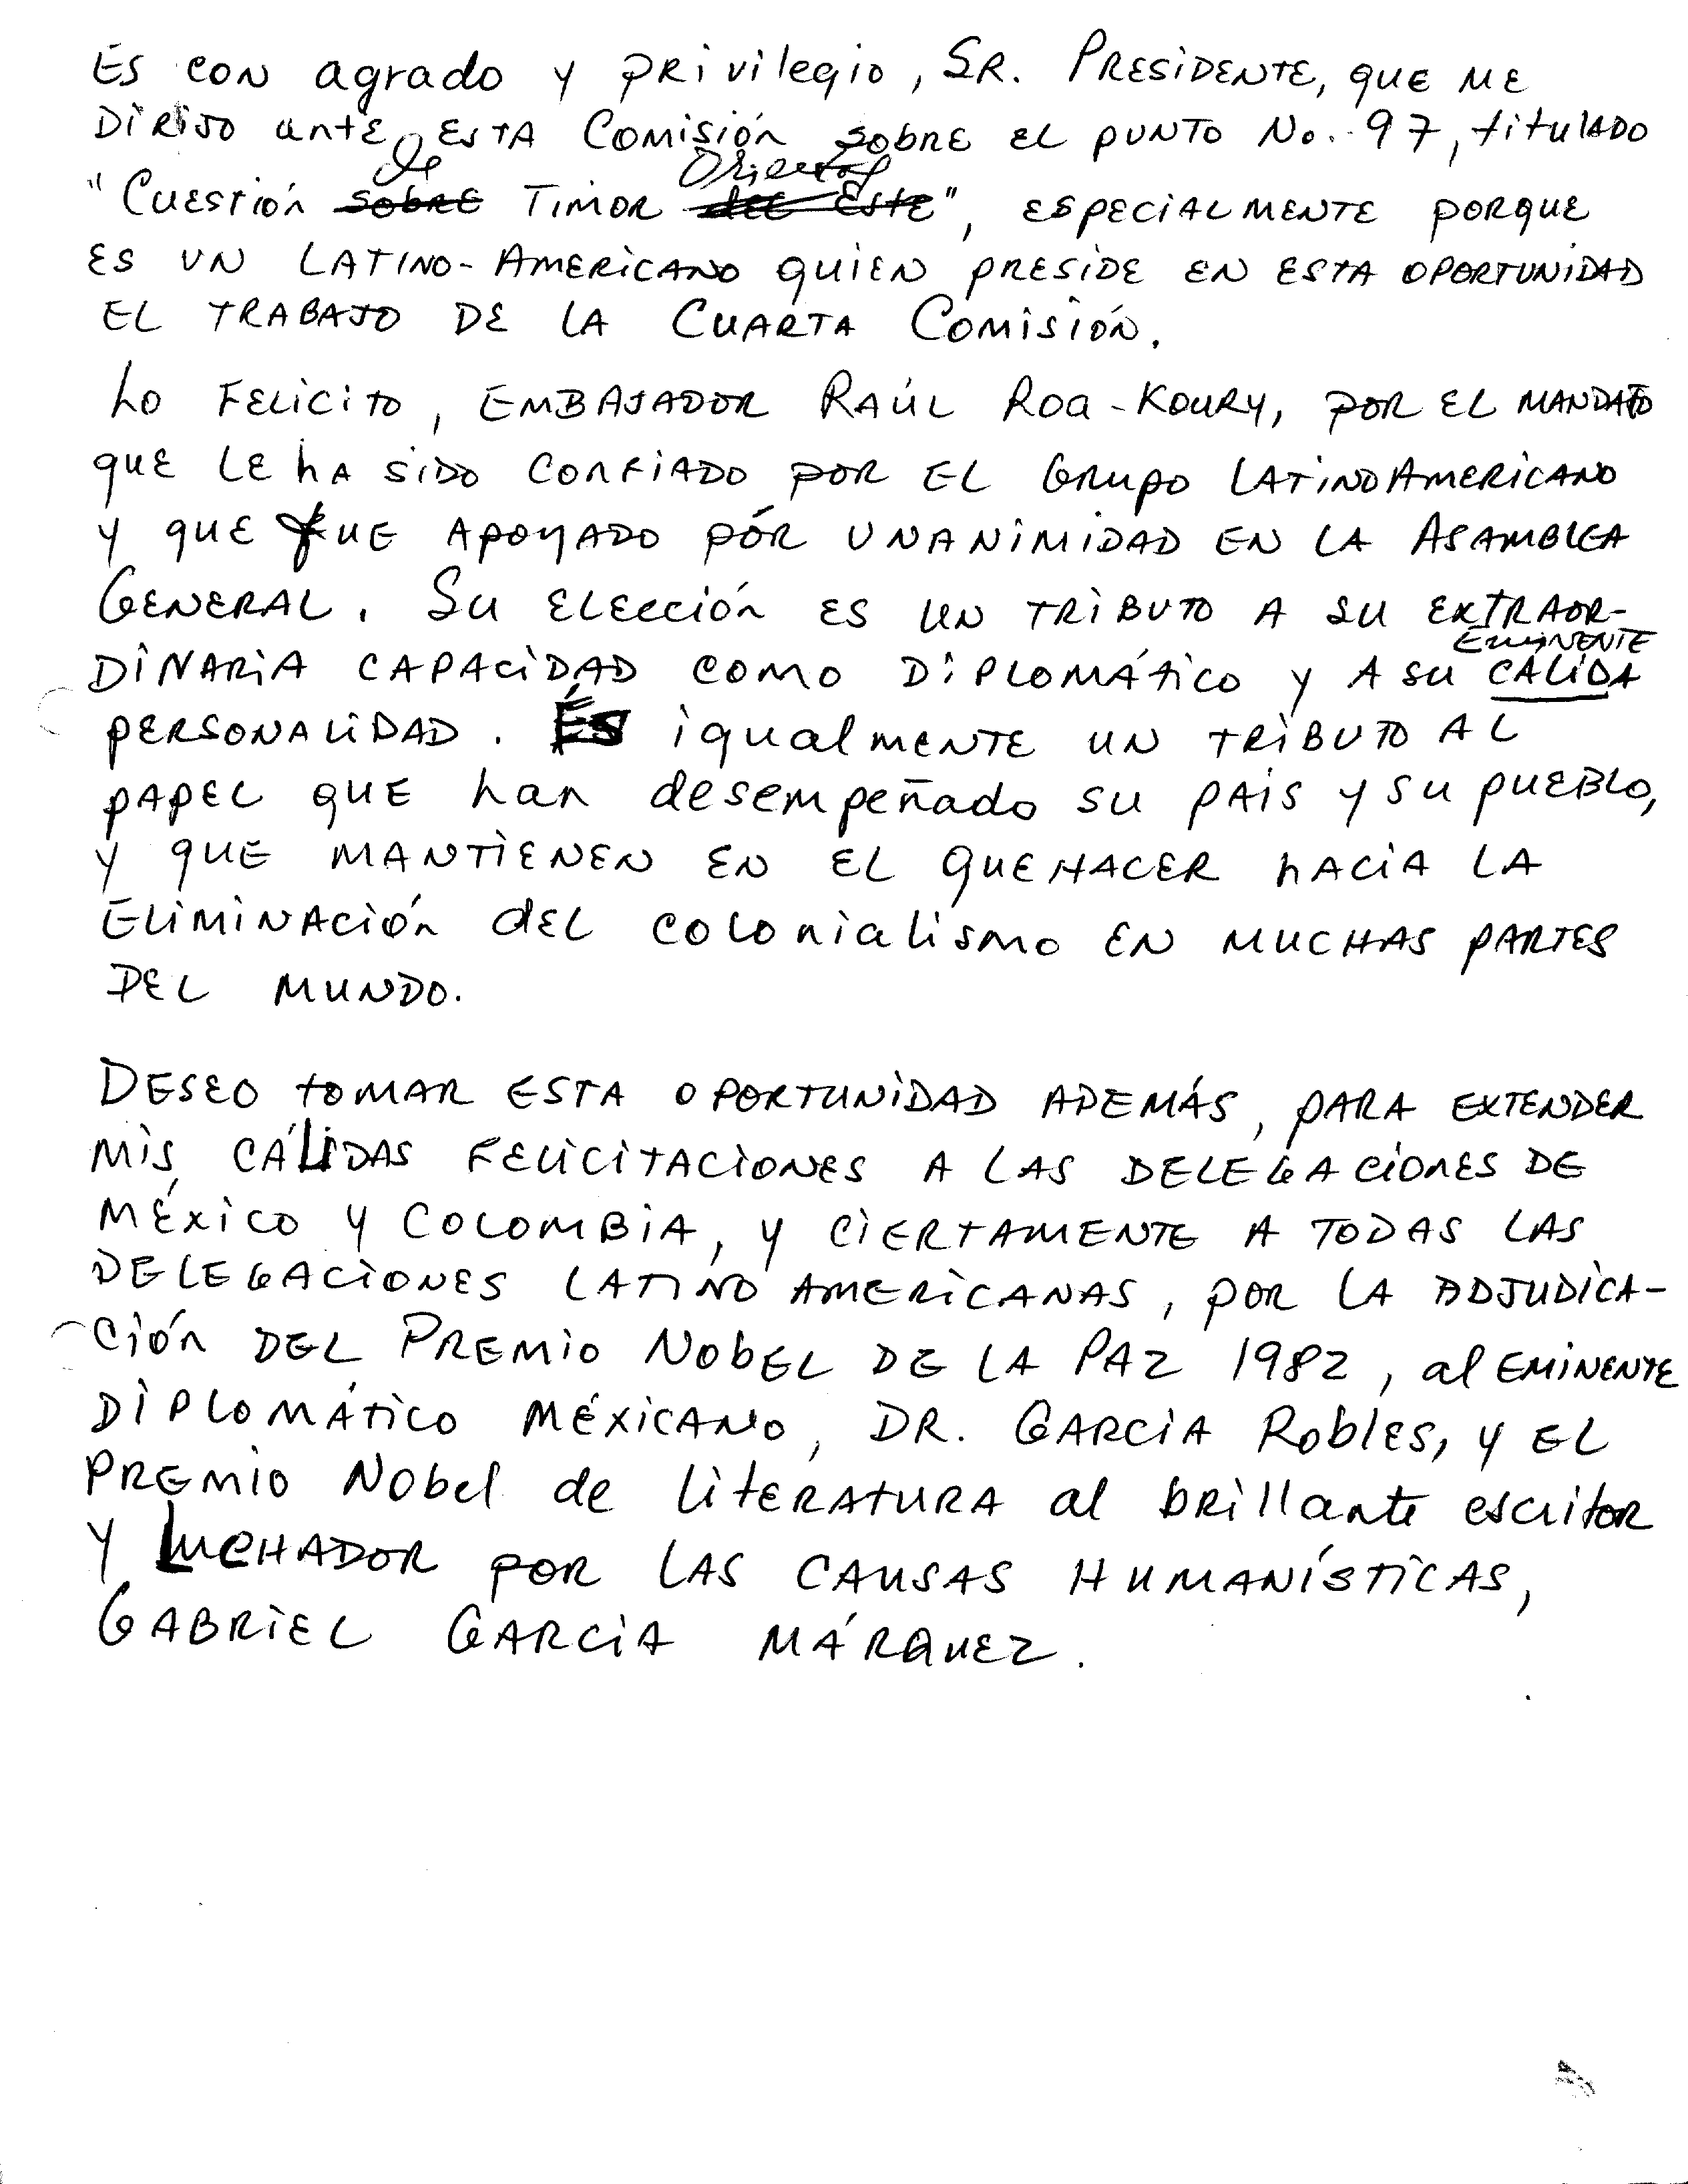 Es con agrado y privilegio, Sr. Presidente, que me
dirijo ante esta Comisión sobre el punto No. 97, titulado
de Oriental
"Cuestión sobre Timor del Este", especialmente porque
es un Latino-Americano quien preside en esta oportunidad
el trabajo de la Cuarta Comisión.
Lo felicito, Embajador Raúl Roa-Koury, por el mandato
que le ha sido confiado por el Grupo LatinoAmericano
y que fue apoyado pór unanimidad en la Asamblea
General. Su elección es un tributo a su extraor-
eminente
dinaria capacidad como diplomático y a su cálida
personalidad. És igualmente un tributo al
papel que han desempeñado su pais y su pueblo,
y que mantienen en el quehacer hacia la
eliminación del colonialismo en muchas partes
del mundo.
Deseo tomar esta oportunidad además, para extender
mis cálidas felicitaciones a las delegaciones de
México y Colombia, y ciertamente a todas las
delegaciones latino americanas, por la adjudica-
ción del Premio Nobel de la Paz 1982, al eminente
diplomático méxicano, Dr. Garcia Robles, y el
Premio Nobel de literatura al brillante escritor
y luchador por las causas humanísticas,
Gabriel Garcia Márquez.